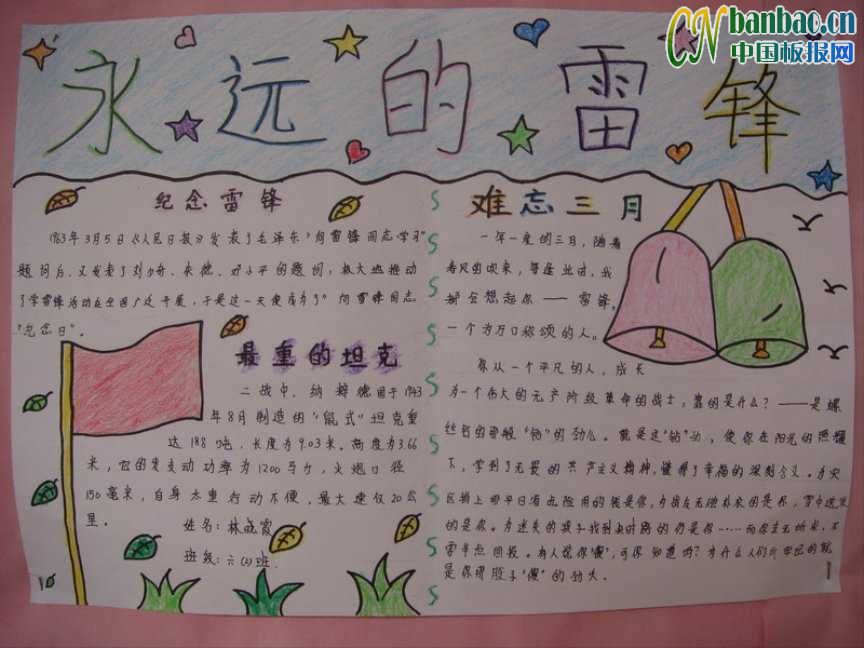 CN banbao.cn
中国板报网
永远的雷锋
纪念雷锋
1963年3月5日《人民日报》发表了毛泽东"向雷锋同志学习"
题词后，又发表了刘少奇、朱德、邓小平的题词，极大地推动
了学雷锋活动在全国广泛开展，于是这一天便成为了"向雷锋同志
"纪念日"。
最重的坦克
二战中，纳粹德国于1943
年8月制造的"鼠式"坦克重
达188吨，长度为9.03米。高度为3.66
米，它的发动功率为1200马力，火炮口径
150毫米，自身太重行动不便，最大速仅20公
里。
姓名：林晓霞
班级：六(2)班
难忘三月
一年一度的三月，随着
春风的吹来，每逢此时，我
都会想起你——雷锋，
一个为万口称颂的人。
你从一个平凡的人，成长
为一个伟大的无产阶级革命的战士，靠的是什么？——是螺
丝钉的那般"钻"的劲儿。就是这"钻"劲，使你在阳光的照耀
下，学到了无畏的共产主义精神，懂得了幸福的深刻含义。为灾
区捐上
的是你。为迷失的孩子找到
是你那股子"傻"的劲头。